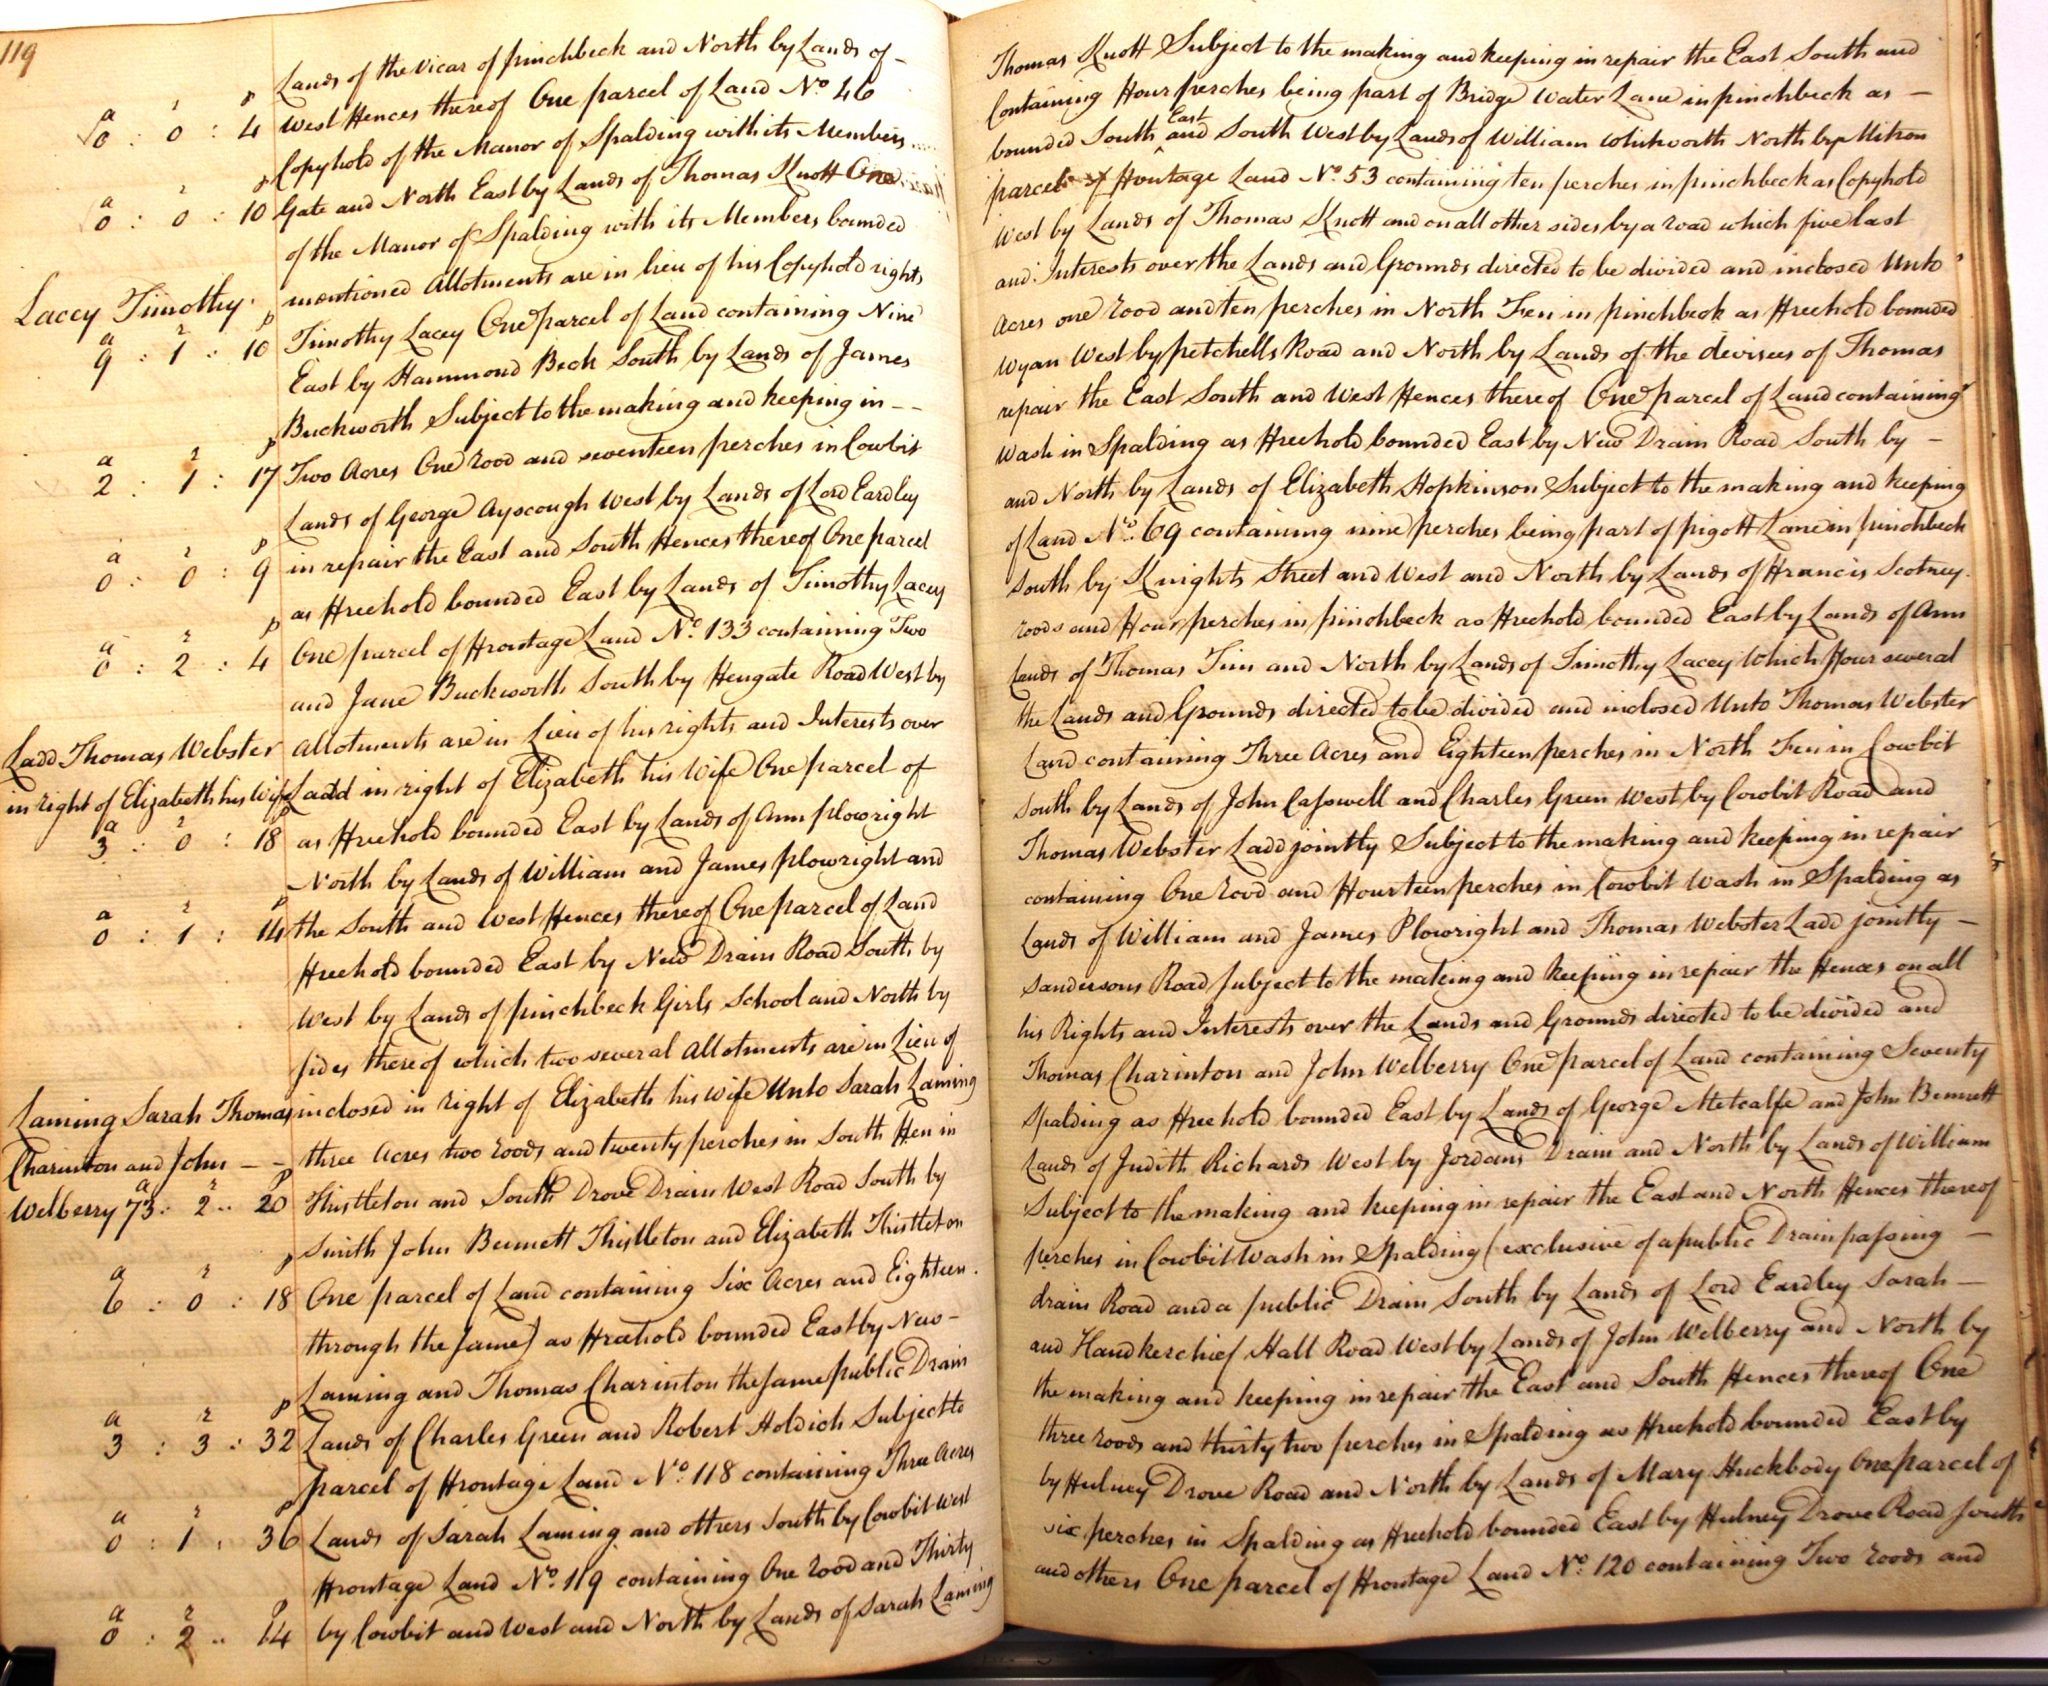 119
Lands of the Vicar of pinchbeck and North by Lands of - Thomas Knott Subject to the making and keeping in repair the East South and
a r p
0 : 0 : 4 West Fences thereof One parcel of Land No. 46 Containing Four perches being part of Bridge Water Lane in pinchbeck as -
Copyhold of the Manor of Spalding with its Members bounded South East and South West by Lands of William Whitworth North by Mitron
a r p
0 : 0 : 10 Gate and North East by Lands of Thomas Knott One parcel of Frontage Land No. 53 containing ten perches in pinchbeck as Copyhold
of the Manor of Spalding with its Members bounded West by Lands of Thomas Knott and on all other sides by a road which five last
mentioned Allotments are in lieu of his Copyhold rights and Interests over the Lands and Grounds directed to be divided and inclosed Unto
Lacey Timothy
a r p
9 : 1 : 10 Timothy Lacey One parcel of Land containing Nine Acres one rood and ten perches in North Fen in pinchbeck as Freehold bounded
East by Hammond Beck South by Lands of James Wyan West by petchells Road and North by Lands of the devisees of Thomas
Buckworth Subject to the making and keeping in - - repair the East South and West Fences thereof One parcel of Land containing
a r p
2 : 1 : 17 Two Acres One rood and seventeen perches in Cowbit Wash in Spalding as Freehold bounded East by New Drain Road South by -
Lands of George Ayscough West by Lands of Lord Eardley and North by Lands of Elizabeth Hopkinson Subject to the making and keeping
a r p
0 : 0 : 9 in repair the East and South Fences thereof One parcel of Land No. 69 containing nine perches being part of pigott Lane in pinchbeck
as Freehold bounded East by Lands of Timothy Lacey South by Knights Street and West and North by Lands of Francis Scotney
a r p
0 : 2 : 4 One parcel of Frontage Land No. 133 containing Two roods and Four perches in pinchbeck as Freehold bounded East by Lands of Ann
and Jane Buckworth South by Hengate Road West by Lands of Thomas Tim and North by Lands of Timothy Lacey Which Four several
Allotments are in Lieu of his rights and Interests over the Lands and Grounds directed to be divided and inclosed Unto Thomas Webster
Ladd Thomas Webster
in right of Elizabeth his Wife Ladd in right of Elizabeth his Wife One parcel of Land containing Three Acres and Eighteen perches in North Fen in Cowbit
a r p
3 : 0 : 18 as Freehold bounded East by Lands of Ann plowright South by Lands of John Casswell and Charles Green West by Cowbit Road and
North by Lands of William and James plowright and Thomas Webster Ladd jointly Subject to the making and keeping in repair
a r p
0 : 1 : 14 the South and West Fences thereof One parcel of Land containing One rood and Fourteen perches in Cowbit Wash in Spalding as
Freehold bounded East by New Drain Road South by Lands of William and James Plowright and Thomas Webster Ladd jointly -
West by Lands of pinchbeck Girls School and North by Sandersons Road Subject to the making and keeping in repair the Fences on all
sides thereof which two several Allotments are in Lieu of his Rights and Interests over the Lands and Grounds directed to be divided and
Laming Sarah Thomas inclosed in right of Elizabeth his Wife Unto Sarah Laming Thomas Charinton and John Welberry One parcel of Land containing Seventy
Charinton and John - - three Acres two roods and twenty perches in South Fen in Spalding as Freehold bounded East by Lands of George Metcalfe and John Bennett
a r p
Welberry 73 : 2 : 20 Thistleton and South Drove Drain West Road South by Lands of Judith Richards West by Jordans Drain and North by Lands of William
Smith John Bennett Thistleton and Elizabeth Thistleton Subject to the making and keeping in repair the East and North Fences thereof
a r p
6 : 0 : 18 One parcel of Land containing Six Acres and Eighteen perches in Cowbit Wash in Spalding (exclusive of a public Drain passing -
through the same) as Freehold bounded East by New - drain Road and a public Drain South by Lands of Lord Eardley Sarah -
Laming and Thomas Charinton the same public Drain and Handkerchief Hall Road West by Lands of John Welberry and North by
Lands of Charles Green and Robert Holdich Subject to the making and keeping in repair the East and South Fences thereof One
a r p
3 : 3 : 32 parcel of Frontage Land No. 118 containing Three Acres three roods and thirty two perches in Spalding as Freehold bounded East by
Lands of Sarah Laming and others South by Cowbit West by Hulney Drove Road and North by Lands of Mary Huckbody One parcel of
a r p
0 : 1 : 36 Frontage Land No. 119 containing One rood and Thirty six perches in Spalding as Freehold bounded East by Hulney Drove Road South
a r p
0 : 2 : 14 by Cowbit and West and North by Lands of Sarah Laming and others One parcel of Frontage Land No. 120 containing Two roods and